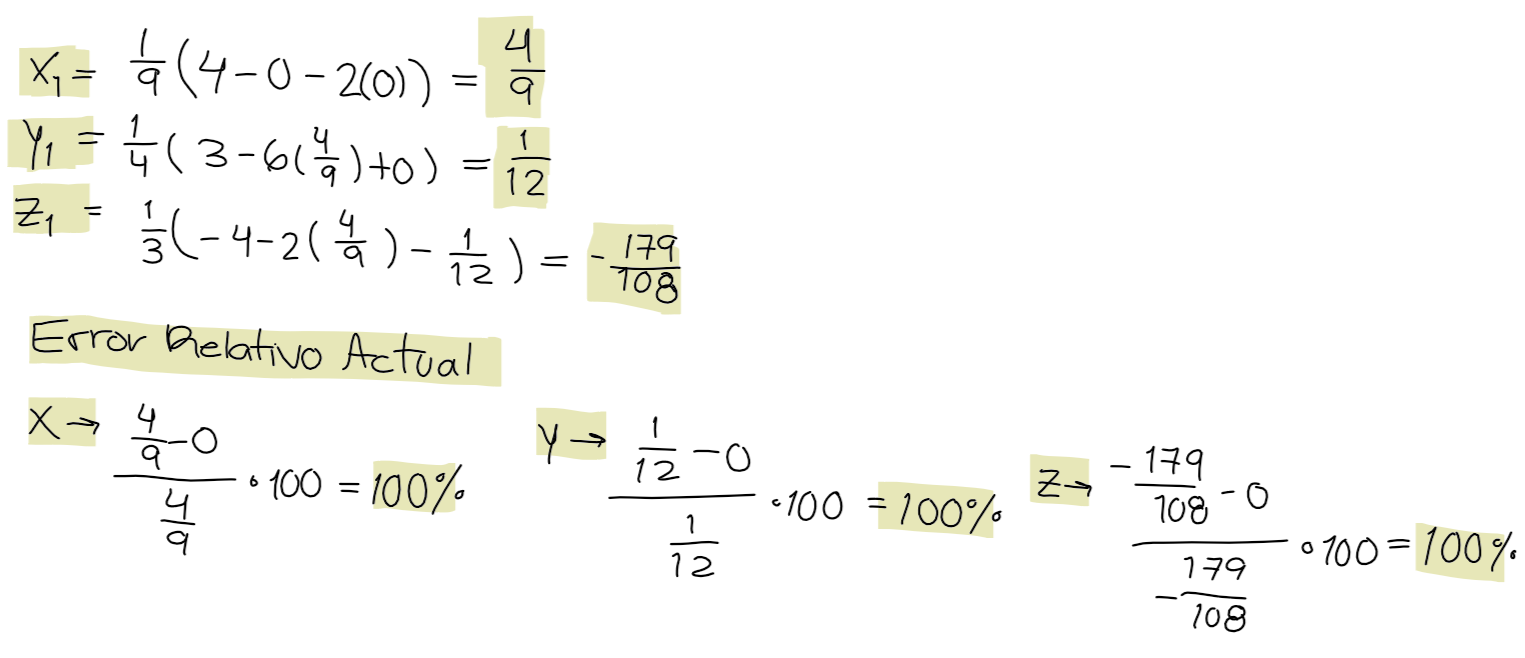 X₁ = 1/9 (4 - 0 - 2(0)) = 4/9
y₁ = 1/4 ( 3 - 6(4/9) + 0 ) = 1/12
Z₁ = 1/3 (- 4 - 2 ( 4/9 ) - 1/12 ) = - 179/108
Error Relativo Actual
X → (4/9 - 0)/(4/9) • 100 = 100% y → (1/12 - 0)/(1/12) • 100 = 100% Z → (- 179/108 - 0)/(- 179/108) • 100 = 100%